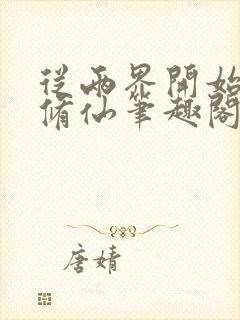 從兩界開始
脩仙筆趣閣
唐婧